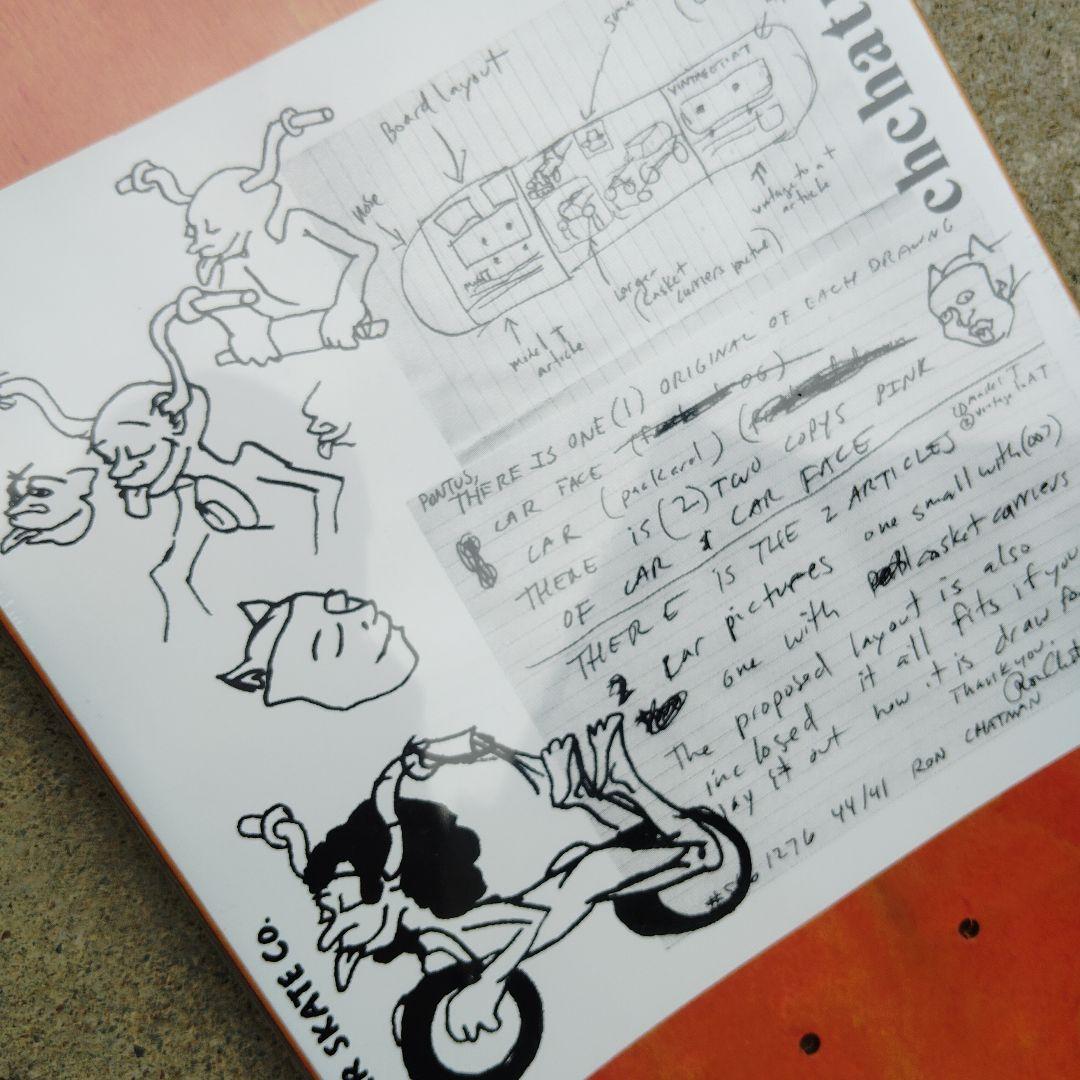 chchat
Board layout
Nose
VINTAGE TIN T
Model T
vintage to a t
article
Larger
(casket
carriers picture)
model T
article
PONTUS,
THERE IS ONE (1) ORIGINAL OF EACH DRAWNG
CAR FACE 06)
CAR (packard)
THERE IS (2) TWO COPYS PINK
OF CAR & CAR FACE
THERE IS THE 2 ARTICLES ① model T
② vintage
2 car pictures one small with (007)
one with casket carriers
The proposed layout is also
inclosed it all fits if you
lay it out how it is draw
Thank you.
Ron Chat
1276 44/41 RON CHATMAN
R SKATE CO.